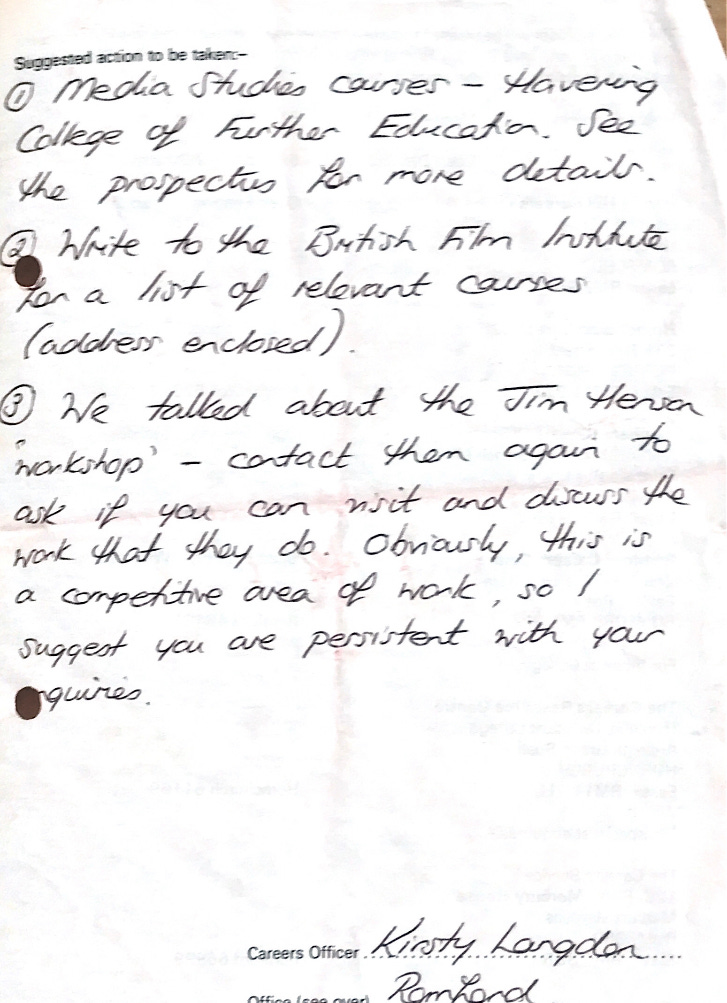 Suggested action to be taken:-
① Media Studies courses - Havering
College of Further Education. See
the prospectus for more details.
② Write to the British Film Institute
for a list of relevant courses
(address enclosed).
③ We talked about the Jim Henson
'workshop' - contact them again to
ask if you can visit and discuss the
work that they do. Obviously, this is
a competitive area of work, so I
suggest you are persistent with your
nquiries.
Careers Officer Kirsty Langdon
Office (see over) Romford